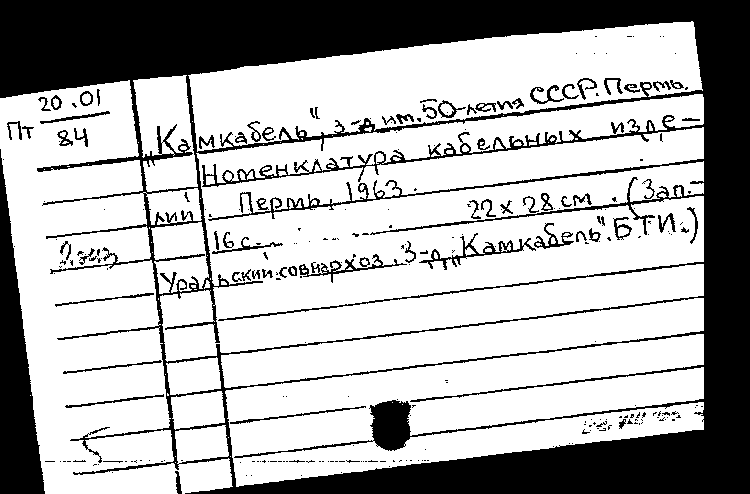 20.01
Пт 84
„Камкабель", з-д им. 50-летия СССР. Пермь.
Номенклатура кабельных изде-
лий. Пермь, 1963.
16 с. 22 x 28 см. (Зап.-
2 экз
Уральский совнархоз. З-д „Камкабель". БТИ.)
5